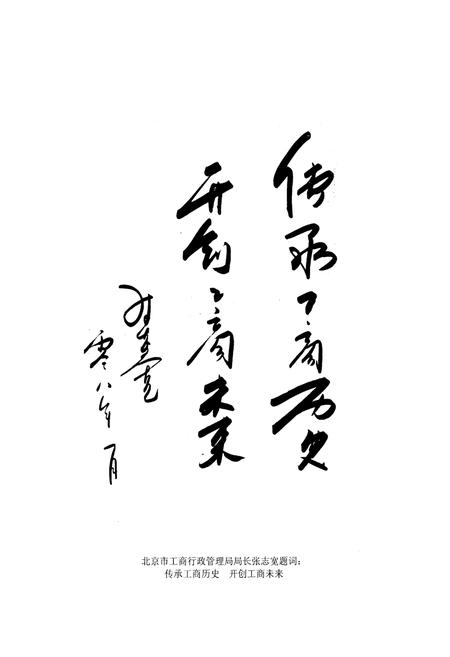 传承工商历史
开创工商未来
张志宽
零八年一月
北京市工商行政管理局局长张志宽题词：
传承工商历史　开创工商未来